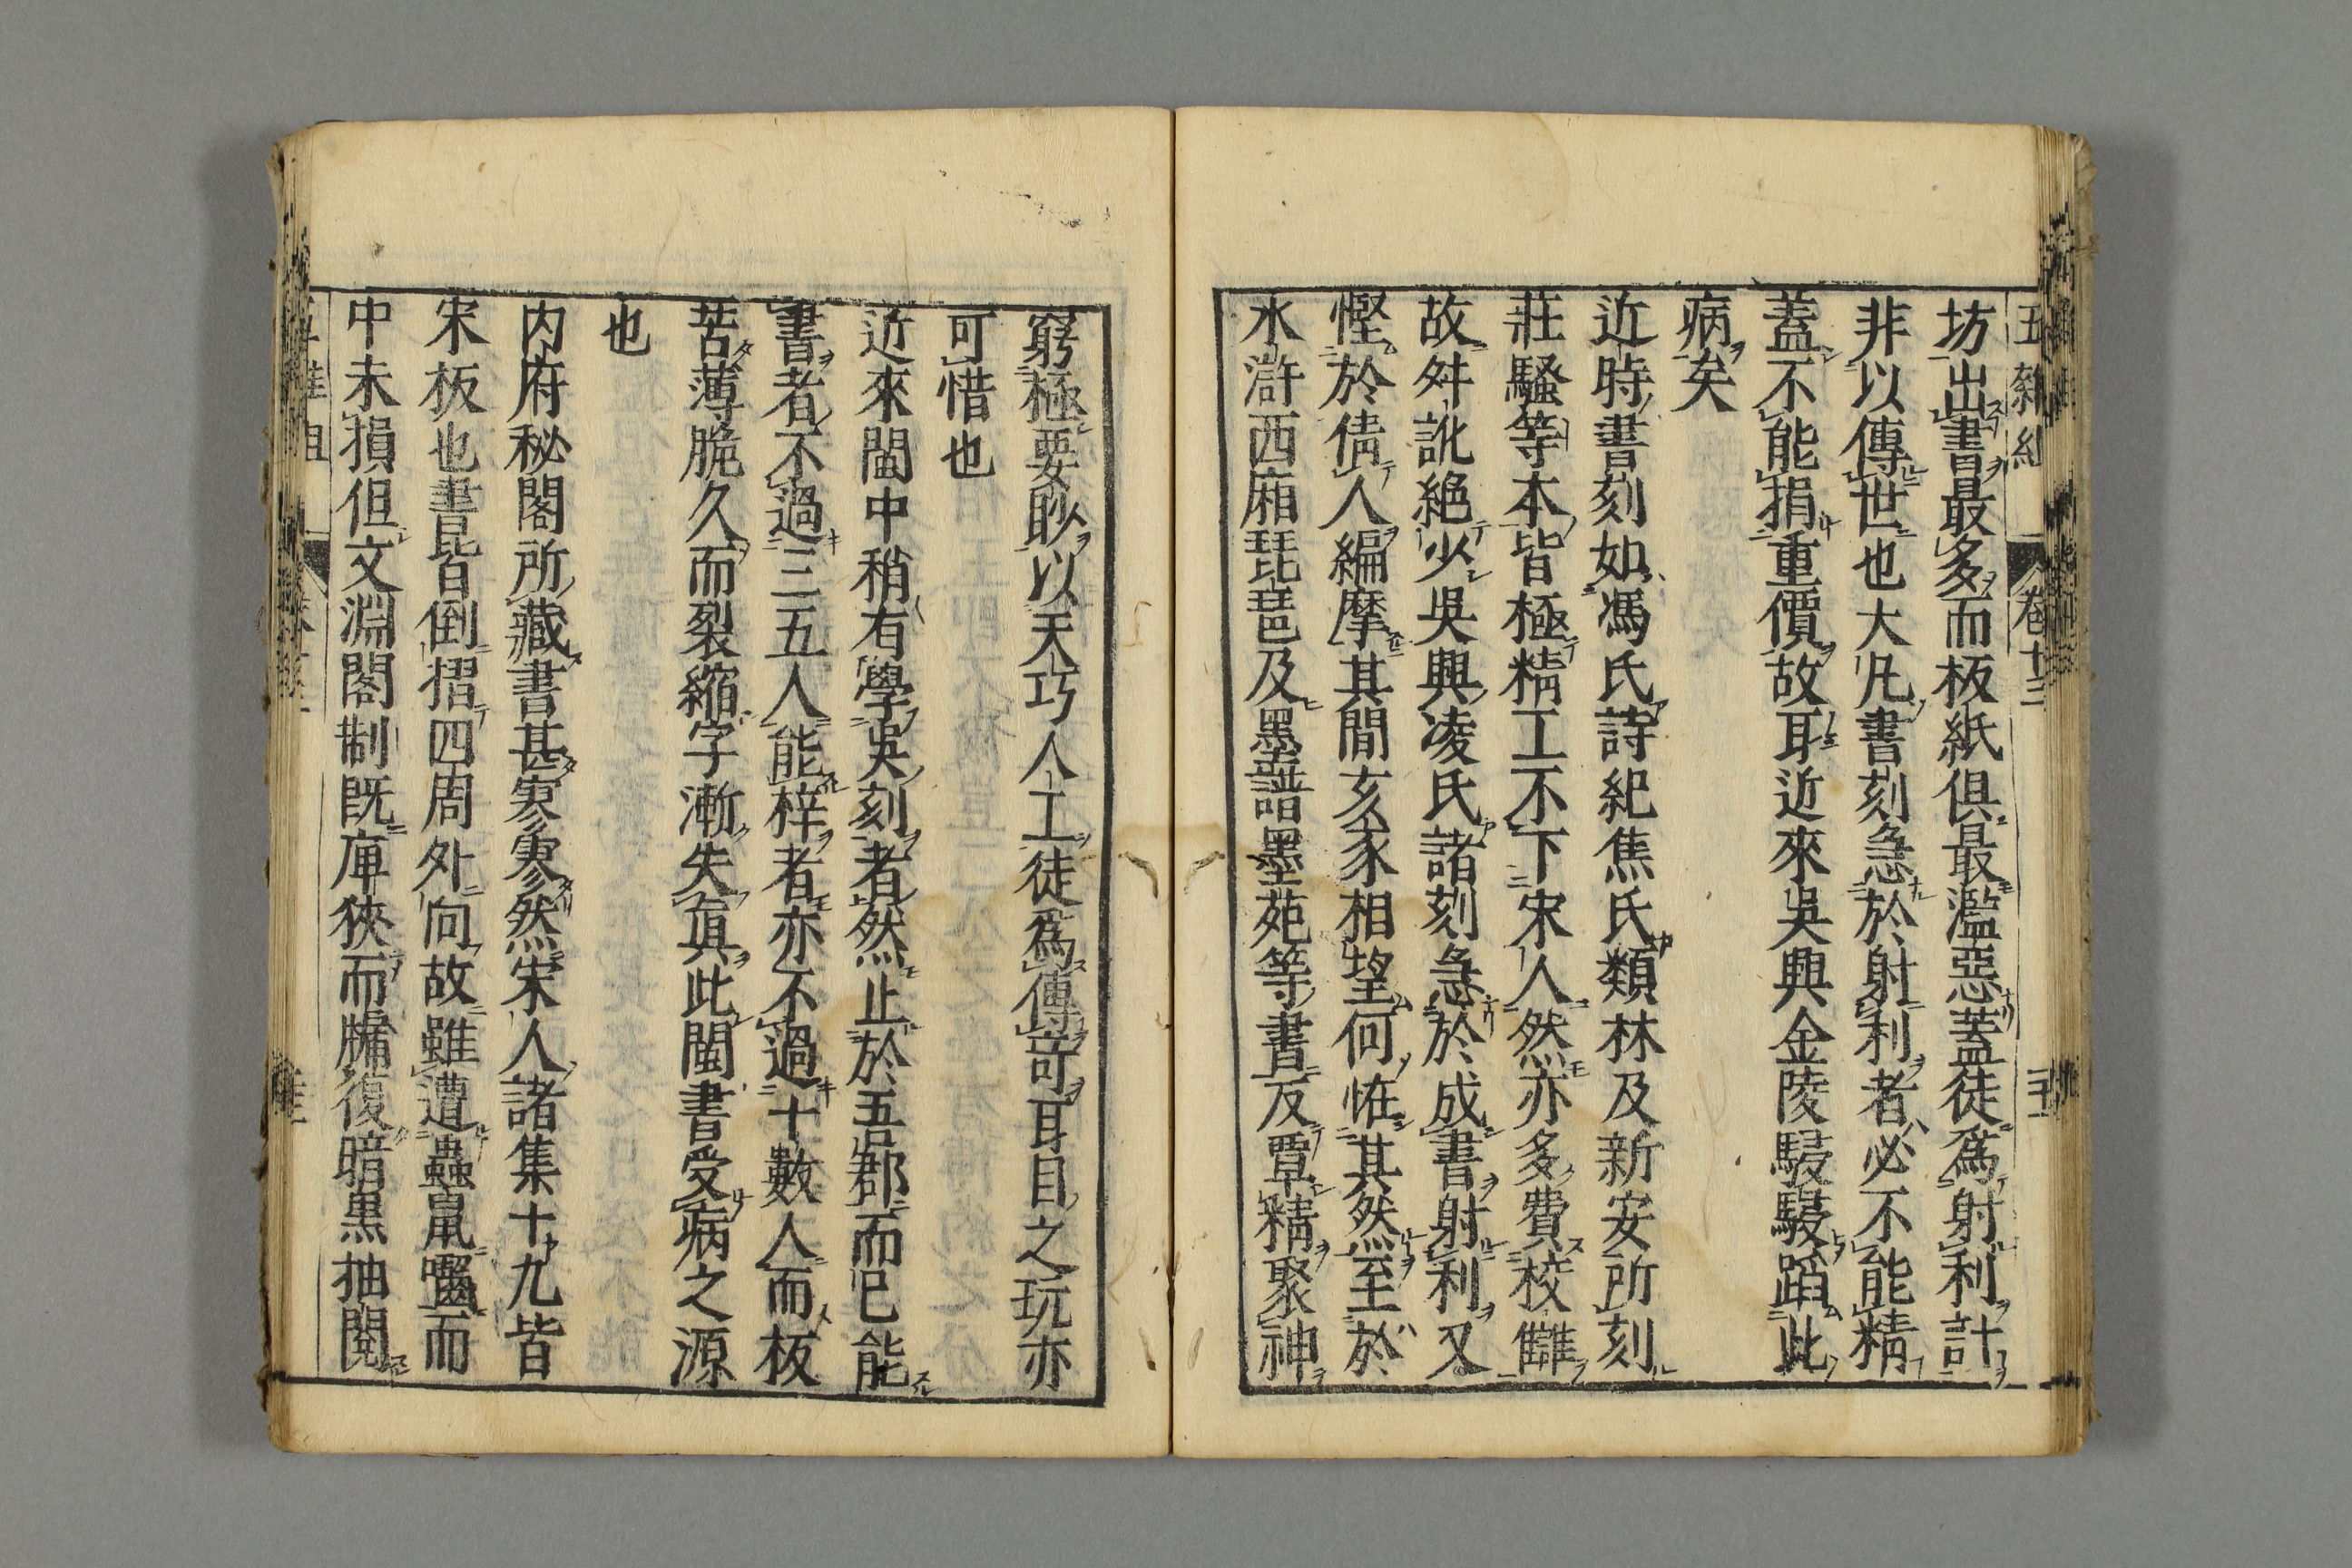 五雜組 卷十三
坊出書最多而板紙俱最濫惡蓋徒爲射利計
非以傳世也大凡書刻急於射利者必不能精
蓋不能捐重價故耳近來吳興金陵駸駸蹈此
病矣
近時書刻如馮氏詩紀焦氏類林及新安所刻
莊騷等本皆極精工不下宋人然亦多費校讎
故舛訛絶少吳興凌氏諸刻急於成書射利又
慳於倩人編摩其間亥豕相望何怪其然至於
水滸西廂琵琶及墨譜墨苑等書反覃精聚神
窮極要眇以天巧人工徒爲傳奇耳目之玩亦
可惜也
近來閩中稍有學吳刻者然止於吾郡而已能
書者不過三五人能梓者亦不過十數人而板
苦薄脆久而裂縮字漸失眞此閩書受病之源
也
内府秘閣所藏書甚寥寥然宋人諸集十九皆
宋板也書皆倒摺四周外向故雖遭蟲鼠嚙而
中未損但文淵閣制既庳狹而牖復暗黑抽閱